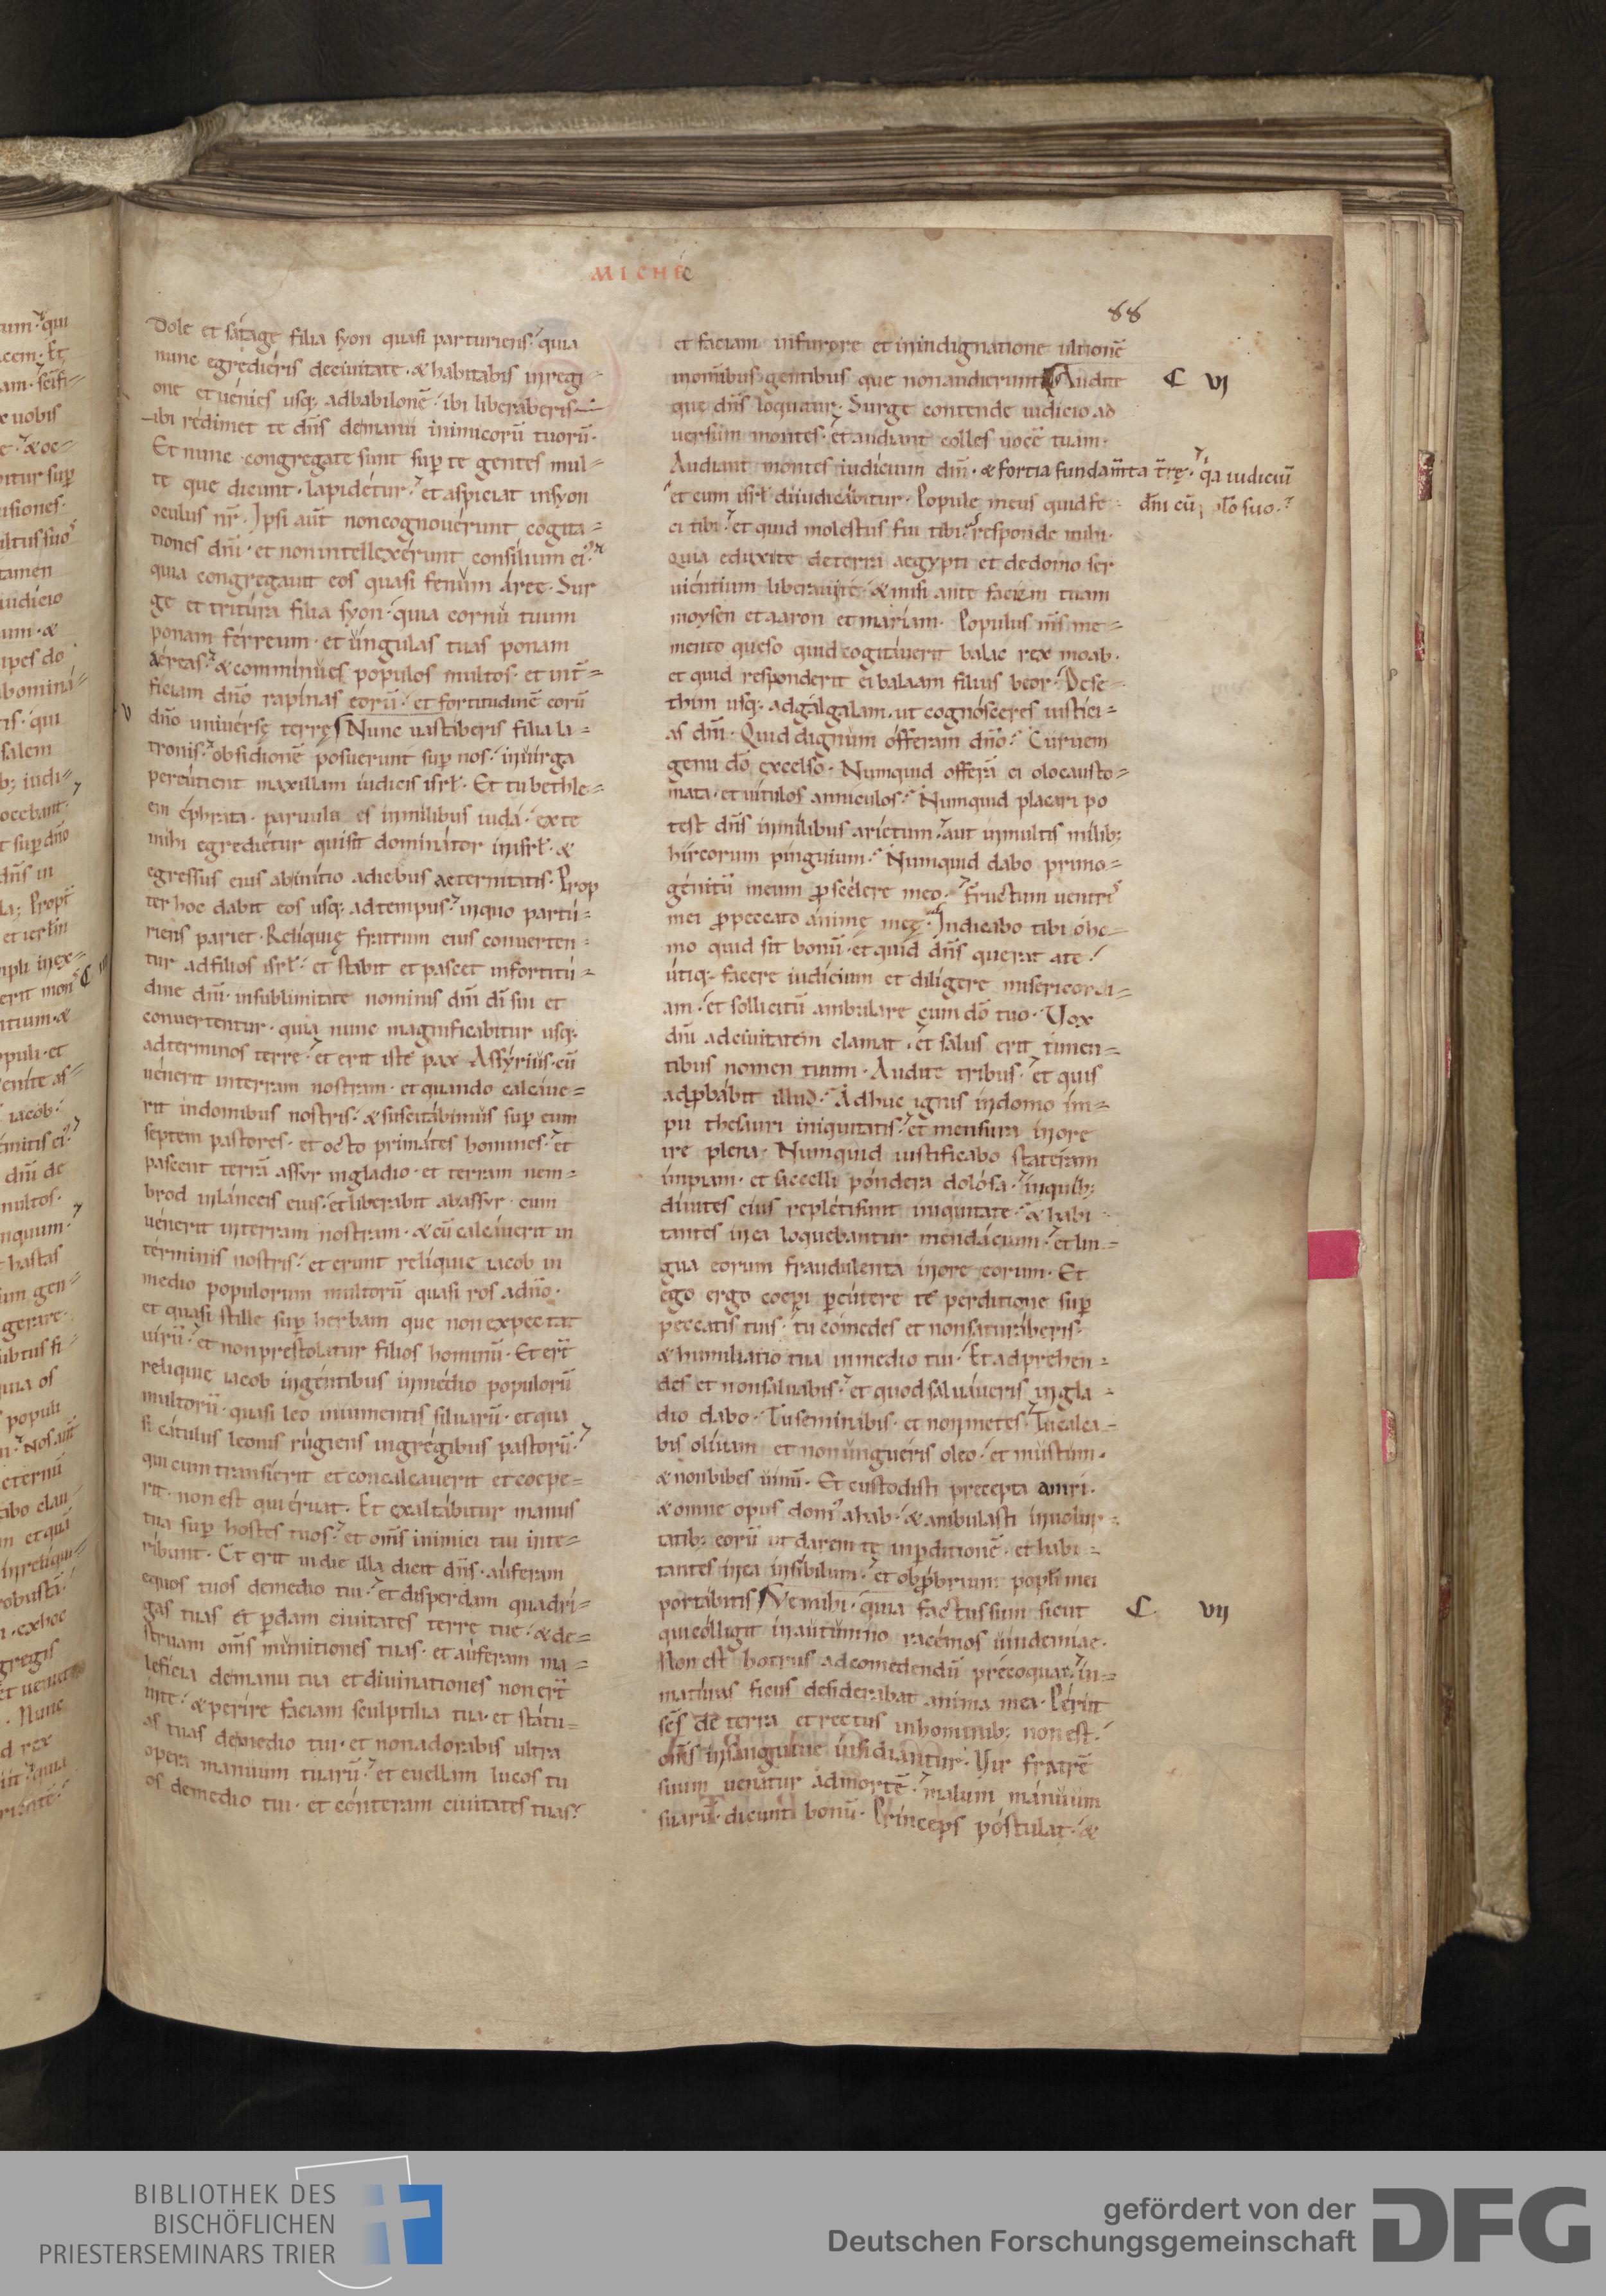 MICHĘ
88
Dole et sátage filia syon quasi parturiens. quia
nunc egrediéris deciuitate. & habitabis inregi-
one et uénies usq; adbabilonē. ibi liberáberis
ibi rédimet te dn̄s demanu inimicorū tuorū.
Et nunc congregate sunt sup̄ te gentes mul-
te que dicunt. lapidétur. et aspiciat insyon
oculus nr̄. Ipsi aūt noncognouérunt cogita-
tiones dn̄i. et nonintellexérunt consilium ei᾿.
quia congregauit eos quasi fenum áreę. Sur
ge et tritúra filia syon. quia cornū tuum
ponam férreum. et úngulas tuas ponam
aéreas. & comminues populos multos. et int̄-
ficiam dn̄o rapinas eorū. et fortitudinē eorū
V
dn̄o uniuérsę terrę Nunc uastáberis filia la-
tronis. obsidionē posuerunt sup̄ nos. inuirga
percútient maxillam iudicis isrl̄. Et tu bethle-
em éphrata. paruula es inmilibus iudá. ex te
mihi egrediétur quisit dominátor inisrl̄. &
egressus eius abinitio adiebus aeternitatis. Prop
ter hoc dabit eos usq; adtempus. inquo partú-
riens pariet. Relíquię fratrum eius conuerten-
tur adfilios isrl̄. et stabit et pascet infortitú-
dine dn̄i. insublimitate nominis dn̄i dī sui et
conuertentur. quia nunc magnificabitur usq;
adterminos terre. et erit iste pax Assýrius. cū
uénerit interram nostram. et quando calcáue-
rit indomibus nostris. & suscitábimus sup̄ eum
septem pastores. et octo primátes homines. et
pascent terrā assyr ingladio. et terram nem-
brod inlánceis eius. et liberabit abassyr. cum
uénerit interram nostram. & cū calcáuerit in
términis nostris. et erunt relíquie iacob in
medio populorum multorū quasi ros adn̄o.
et quasi stille sup̄ herbam que nonexpectat
uirū. et nonprestolatur filios hominū. Et ert̄
relíquie iacob ingéntibus inmédio populorū
multorū. quasi leo iniumentis siluarū. et qua
si cátulus leonis rúgiens ingrégibus pastorū.
qui cum transíerit et concalcauerit et coepe-
rit. non est qui éruat. Et exaltábitur manus
tua sup̄ hostes tuos. et om̄s inimici tui inte-
ríbunt. Et erit indie illa dicit dn̄s. áuferam
equos tuos demedio tui. et dispérdam quadrí-
gas tuas et p̄dam ciuitates terre tue. & de-
struam om̄s munitiones tuas. et áuferam ma-
leficia demanu tua et diuinationes non ert̄
inte. & perire faciam sculptilia tua. et státu-
as tuas demedio tui. et nonadorabis ultra
opera manuum tuarū. et euellam lucos tu
os demedio tui. et cónteram ciuitates tuas.
et faciam infurore et inindignatione ultionē
inomibus gentibus que nonaudierunt Audite
C VI
que dn̄s loquitur. Surge contende iudicio ad
uersum montes. et audiant colles uocē tuam.
Audiant montes iudícium dn̄i. & fortia fundam̄ta tr̄ę. q́a iudiciū
dn̄i cū plo suo.
et cum isrl̄ diiudicábitur. Popule meus quid fe-
ci tibi. et quid molestus fui tibi. responde mihi.
Quia eduxite deterra aegypti et dedomo ser
uiéntium liberauite. & misi ante faciem tuam
moysen et aaron et maríam. Populus m̄s me-
mento queso quid cogitáuerit balac rex moab.
et quid responderit ei balaam filius beor. Dese-
thim usq; adgálgalam. ut cognósceres iustici-
as dn̄i. Quid dignum ófferam dn̄o. Curuem
genu dō excelso. Numquid offerā ei olocausto-
mata. et uítulos anniculos. Numquid placari po
test dn̄s inmilibus arietum. aut inmultis milib;
hircorum pinguium. Numquid dabo primo-
génitū meum p̄scélere meo. Fructum uentr᾿
mei p̄peccato ánimę meę. Indicabo tibi óho-
mo quid sit bonū. et quid dn̄s querat ate.
útiq; facere iudícium et díligere misericordi-
am. et sollicitū ambulare cum dō tuo. Uox
dn̄i adciuitatem clamat. et salus erit timen-
tibus nomen tuum. Audite tribus. et quis
adp̄bábit illud. Adhuc ignis indomo ím-
pii thesauri iniquitatis. et mensura inore
ire plena. Numquid iustificabo státeram
ímpiam. et saccelli póndera dolósa. inquib;
diuites eius replétisunt iniquitate. & habi-
tantes inea loquebantur mendácium. et lin-
gua eorum fraudulenta inore eorum. Et
ego ergo coepi p̄cútere te perditione sup̄
peccatis tuis. tu cómedes et nonsaturáberis.
& humiliatio tua inmedio tui. Et adprehen-
des et nonsaluabis. et quod saluáueris ingla-
dio dabo. Tu seminabis. et non metes. Tu calca-
bis olíuam et nonunguéris oleo. et mustum.
& nonbibes uinū. Et custodisti precepta amri.
& omne opus dom᾿ ahab. & ambulasti inuolup-
tatib; eorū ut darem te inp̄ditionē. et habi-
tantes inea insíbilum. et obp̄brium popl̄i mei
portábitis Ve mihi. quia factussum sicut
C VII
qui cólligit inautumno racémos uindemiae.
Non est botrus adcomedendū precoquas. in-
maturas ficus desiderabat anima mea. Périit
sc̄s de terra et rectus inhominib; non est.
om̄s insanguine insidiantur. Uir fratrē
suum uenatur admortē. malum mánuum
suarū dicunt bonū. Prínceps póstulat. &
BIBLIOTHEK DES
BISCHÖFLICHEN
PRIESTERSEMINARS TRIER
gefördert von der
Deutschen Forschungsgemeinschaft
DFG